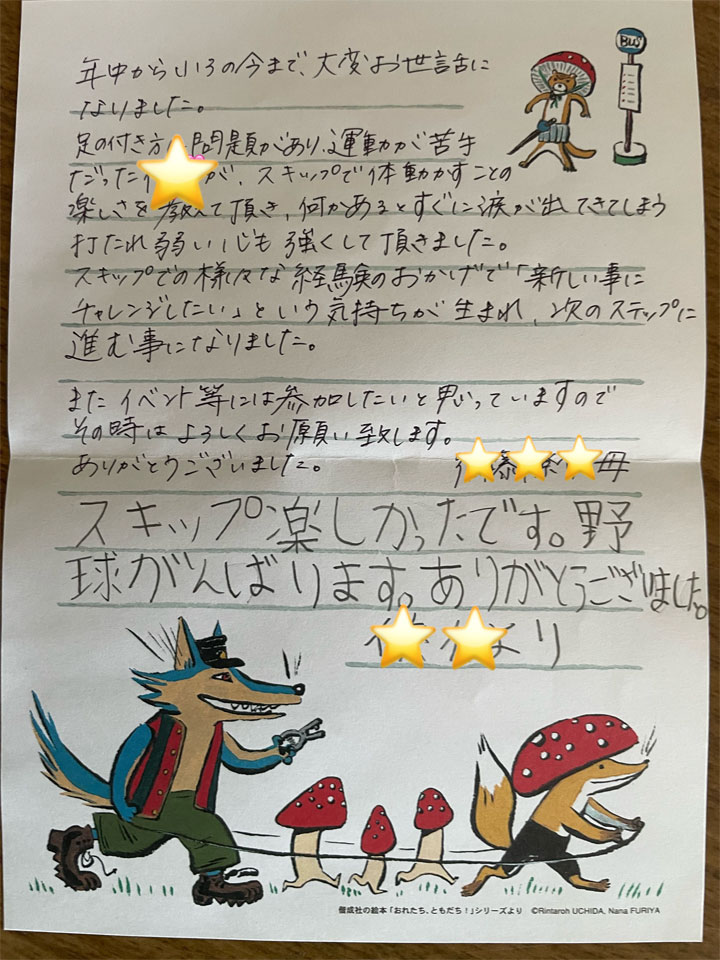 BUS
年中から小3の今まで、大変お世話に
なりました。
足の付き方に問題があり、運動が苦手
だった が、スキップで体動かすことの
楽しさを教えて頂き、何かあるとすぐに涙が出てきてしまう
打たれ弱い心も強くして頂きました。
スキップでの様々な経験のおかげで「新しい事に
チャレンジしたい」という気持ちが生まれ、次のステップに
進む事になりました。
またイベント等には参加したいと思っていますので
その時はよろしくお願い致します。
ありがとうございました。
母
スキップ楽しかったです。野
球がんばります。ありがとうございました。
より
偕成社の絵本「おれたち、ともだち!」シリーズより ©Rintaroh UCHIDA, Nana FURIYA